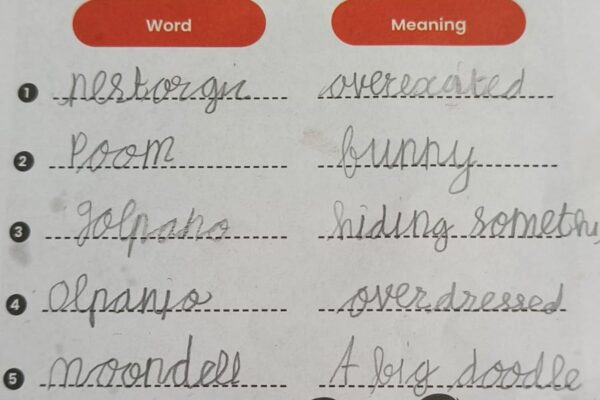 Word Meaning
1 nestorgu overexcited
2 Poom funny
3 golpano hiding somethi
4 Olpanjo overdressed
5 moondell A big doodle